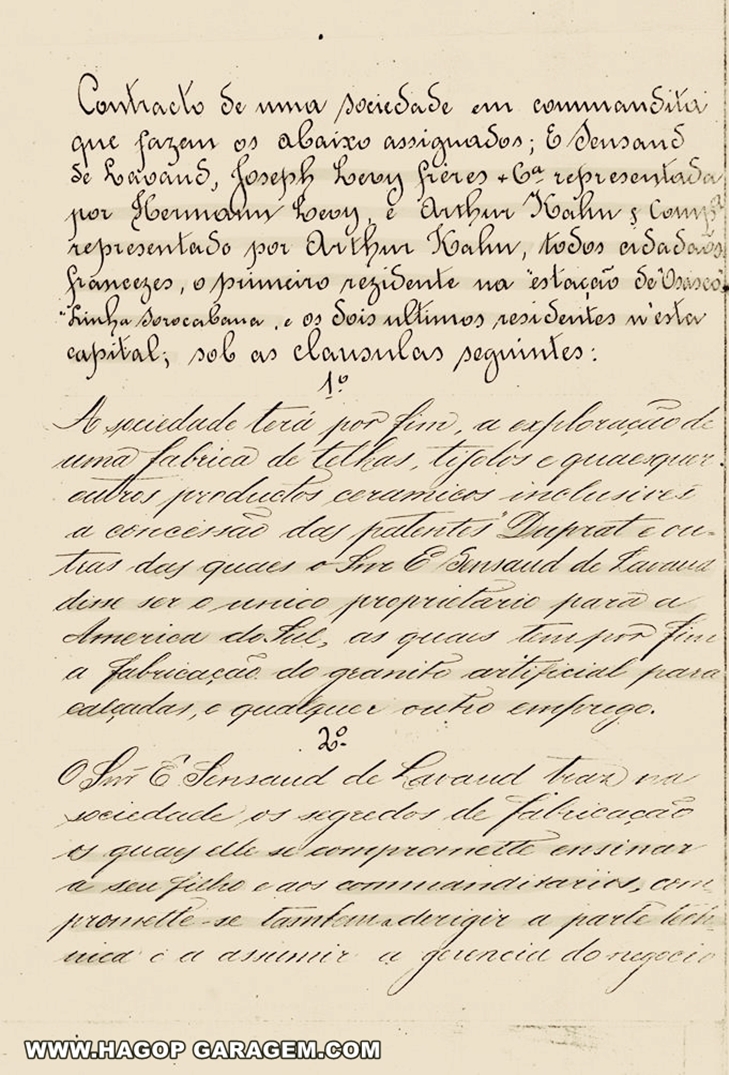 Contracto de uma sociedade em commandita
que fazem os abaixo assignados; E Sensaud
de Lavaud, Joseph Levy frères + Cª representada
por Hermann Levy, e Arthur Kahn & Compª
representado por Arthur Kahn, todos cidadãos
francezes, o primeiro rezidente na "estação de "Osasco"
"Linha Sorocabana, e os dois ultimos residentes n'esta
capital; sob as clausulas seguintes:
1º
A sociedade terá por fim, a exploração de
uma fabrica de telhas, tijolos e quaesquer
outros productos ceramicos inclusives
a concessão das patentes "Duprat e ou-
tras das quaes o Snr E Sensaud de Lavaud
disse ser o unico proprietario para a
America do Sul, as quais tem por fim
a fabricação do granito artificial para
calçadas, e qualquer outro emprego.
2º
O Snr E Sensaud de Lavaud traz na
sociedade os segredos de fabricação
os quaes elle se compromette ensinar
a seu filho e aos commanditarios, com-
promette-se tambem a dirigir a parte tech-
nica e a assumir a gerencia do negocio
WWW.HAGOP GARAGEM.COM